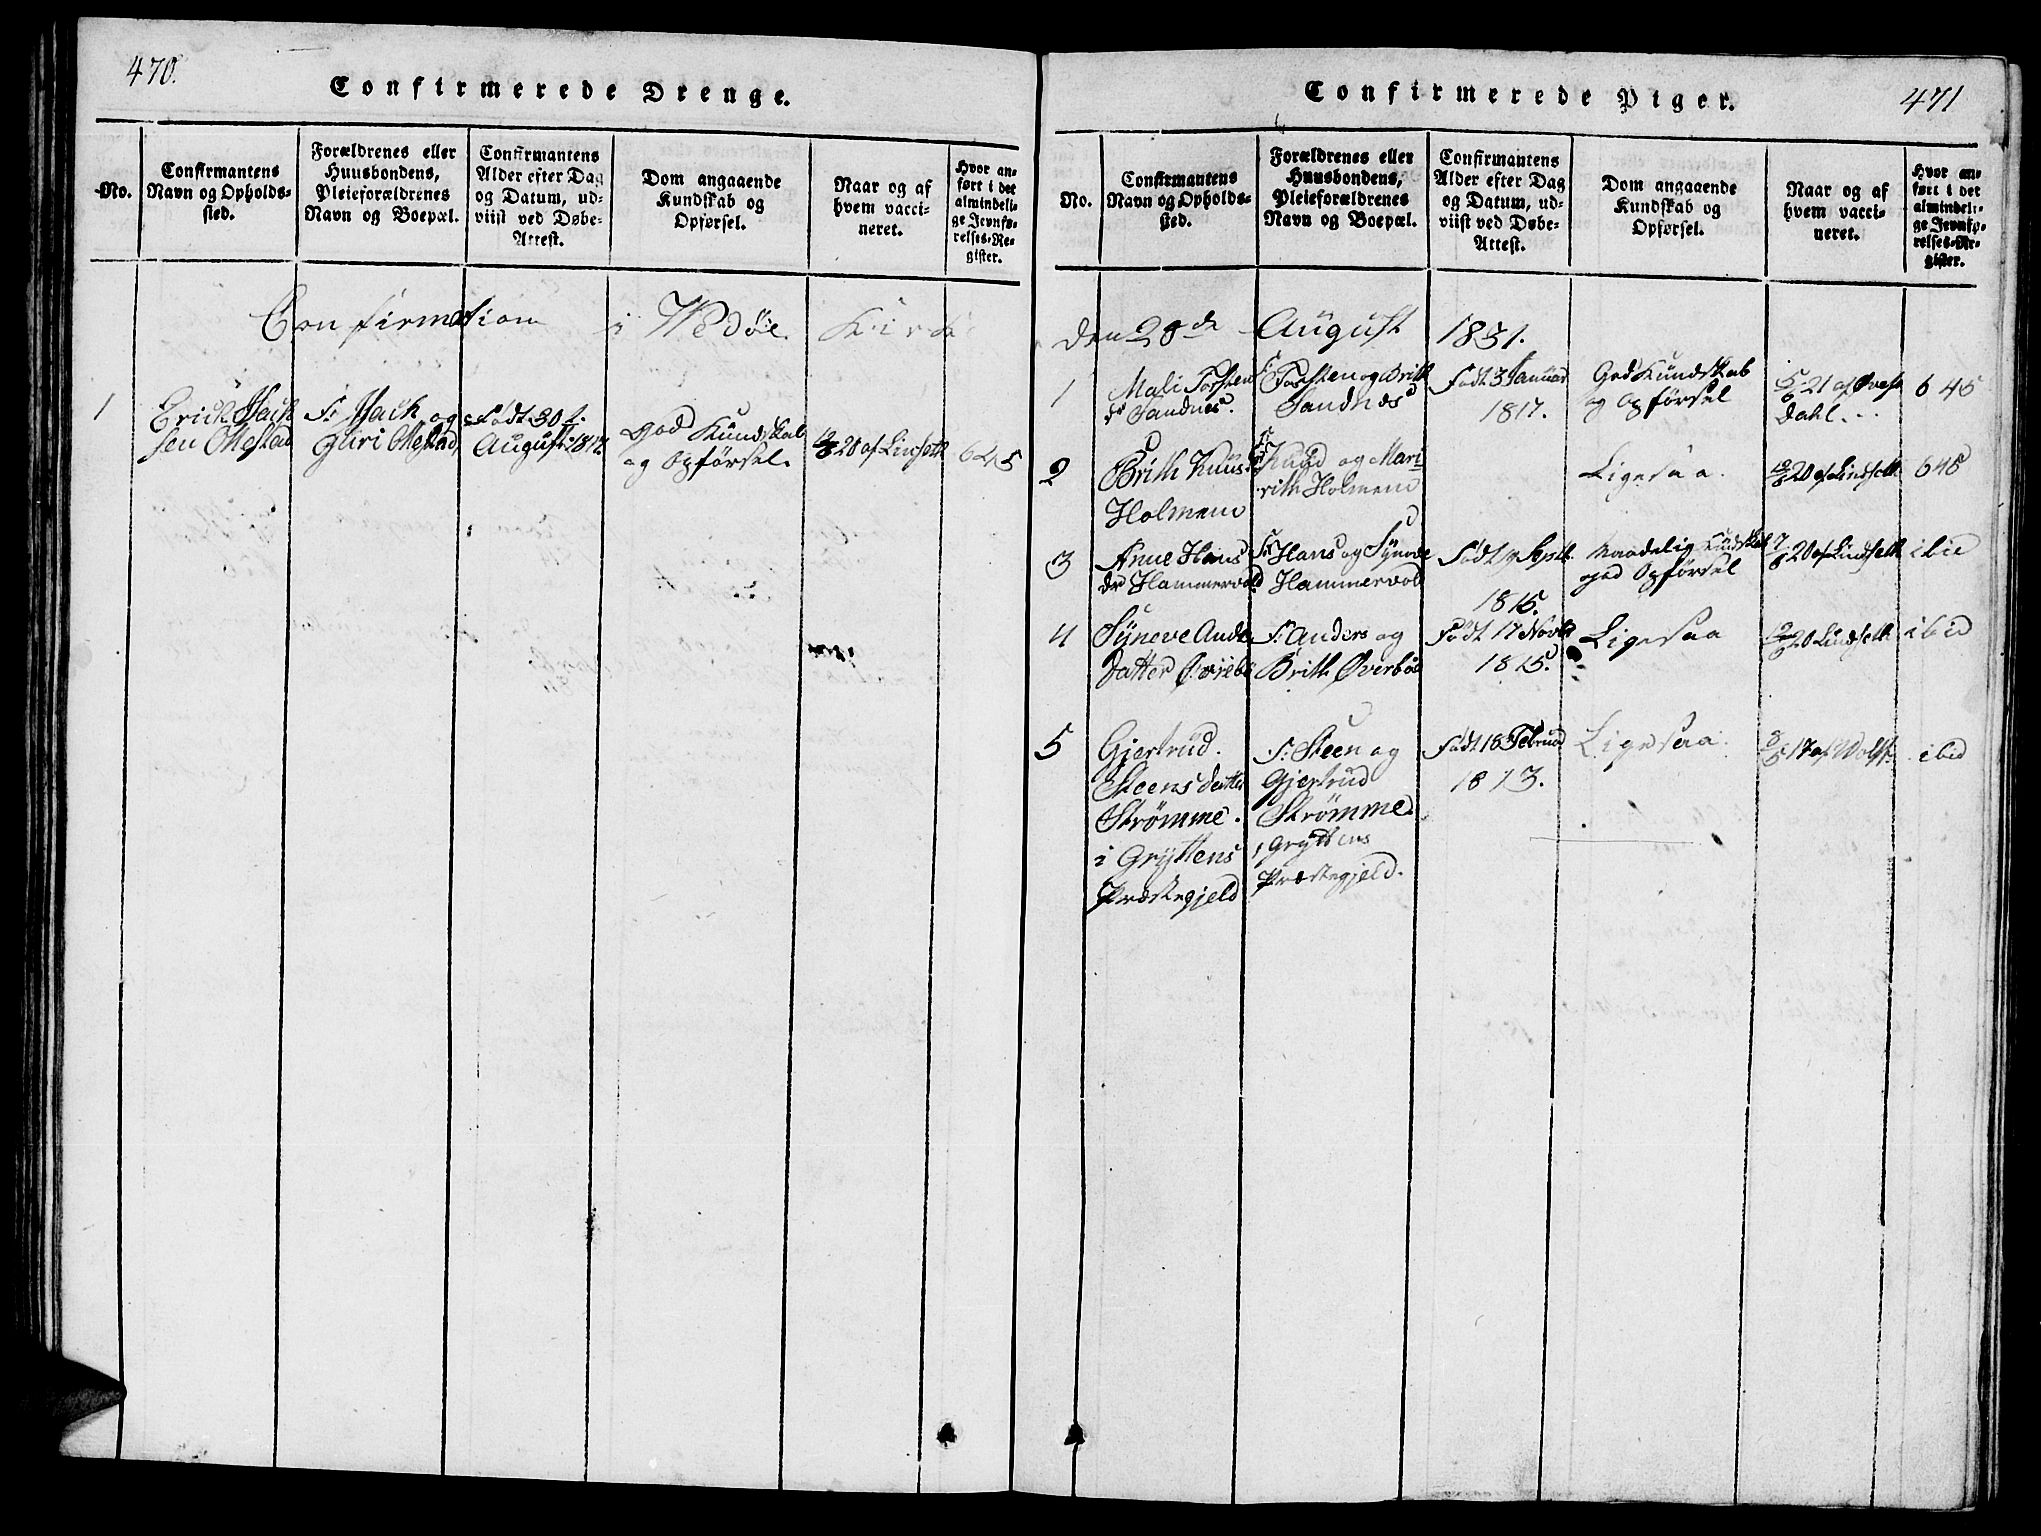 470.
Confirmerede Drenge.
No.
Confirmantens
Navn og Opholds-
sted.
Forældrenes eller
Huusbondens,
Pleieforældrenes
Navn og Boepæl.
Confirmantens
Alder efter Dag
og Datum, ud-
viist ved Døbe-
Attest.
Dom angaaende
Kundskab og
Opførsel.
Naar og af
hvem vacci-
neret.
Hvor an-
ført i det
almindeli-
ge Jevnfø-
relses-Re-
gister.
Confirmation i Wedøe Kirke
1
Erich
sen Mestad
F:
og
Guri Mestad,
Født 30 t.
August 1817.
god Kundskab
og Opførsel.
20 af Linseth
645
471
Confirmerede Piger.
No.
Confirmantens
Navn og Opholds-
sted.
Forældrenes eller
Huusbondens,
Pleieforældrenes
Navn og Boepæl.
Confirmantens
Alder efter Dag
og Datum, ud-
viist ved Døbe-
Attest.
Dom angaaende
Kundskab og
Opførsel.
Naar og af
hvem vacci-
neret.
Hvor an-
ført i det
almindeli-
ge Jevnfø-
relses-Re-
gister.
den 28de August 1831.
1
Mali Torsten
dr Sandnes.
F: Torsten og Brith
Sandnes
Født 3 Januar
1817.
God Kundskab
og Opførsel
21 af
Dahl.
645
2
Brith Knuds
Holmem
F: Knud og Mari-
rith Holmem
Ligesaa.
20 af Lindseth
645
3
Anne Hans
dr Hammervold
F: Hans og Synove
Hammervold
Født Septb
1815.
Maadelig Kundskab
god Opførsel
7/8 20 af Lindseth
ibid
4
Syneve Ande
Datter
F: Anders og
Brith Øverbøe
Født 17 Novb
1815.
Ligesaa
20 Lindseth
ibid
5
Gjertrud.
Steens datter
Strømme.
i Gryttens
Præstegjeld
F: Steen og
Gjertrud
Strømme.
i Gryttens
Præstegjeld.
Født 18 Februa
1813.
Ligesaa.
17 af
ibid